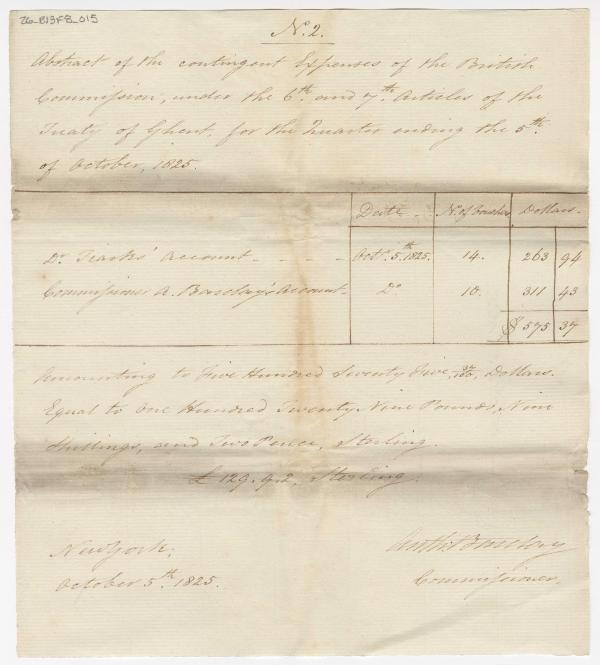 26_B13F8_015
No. 2.
Abstract of the contingent Expenses of the British
Commission, under the 6th. and 7th. Articles of the
Treaty of Ghent, for the Quarter ending the 5th.
of October, 1825.
Date - No. of Vouchers Dollars -
Dr. Tiarks' Account - - - - Octr. 5th. 1825. 14. 263 94
Commissioner A. Barclay's Account - Do 10. 311 43
$ 575 37
Amounting to Five Hundred Seventy Five 37/100, Dollars.
Equal to One Hundred Twenty Nine Pounds, Nine
Shillings, and Two Pence, Sterling.
£ 129. 9. 2, Sterling.
New York,
October 5th. 1825.
Anth: Barclay
Commissioner.